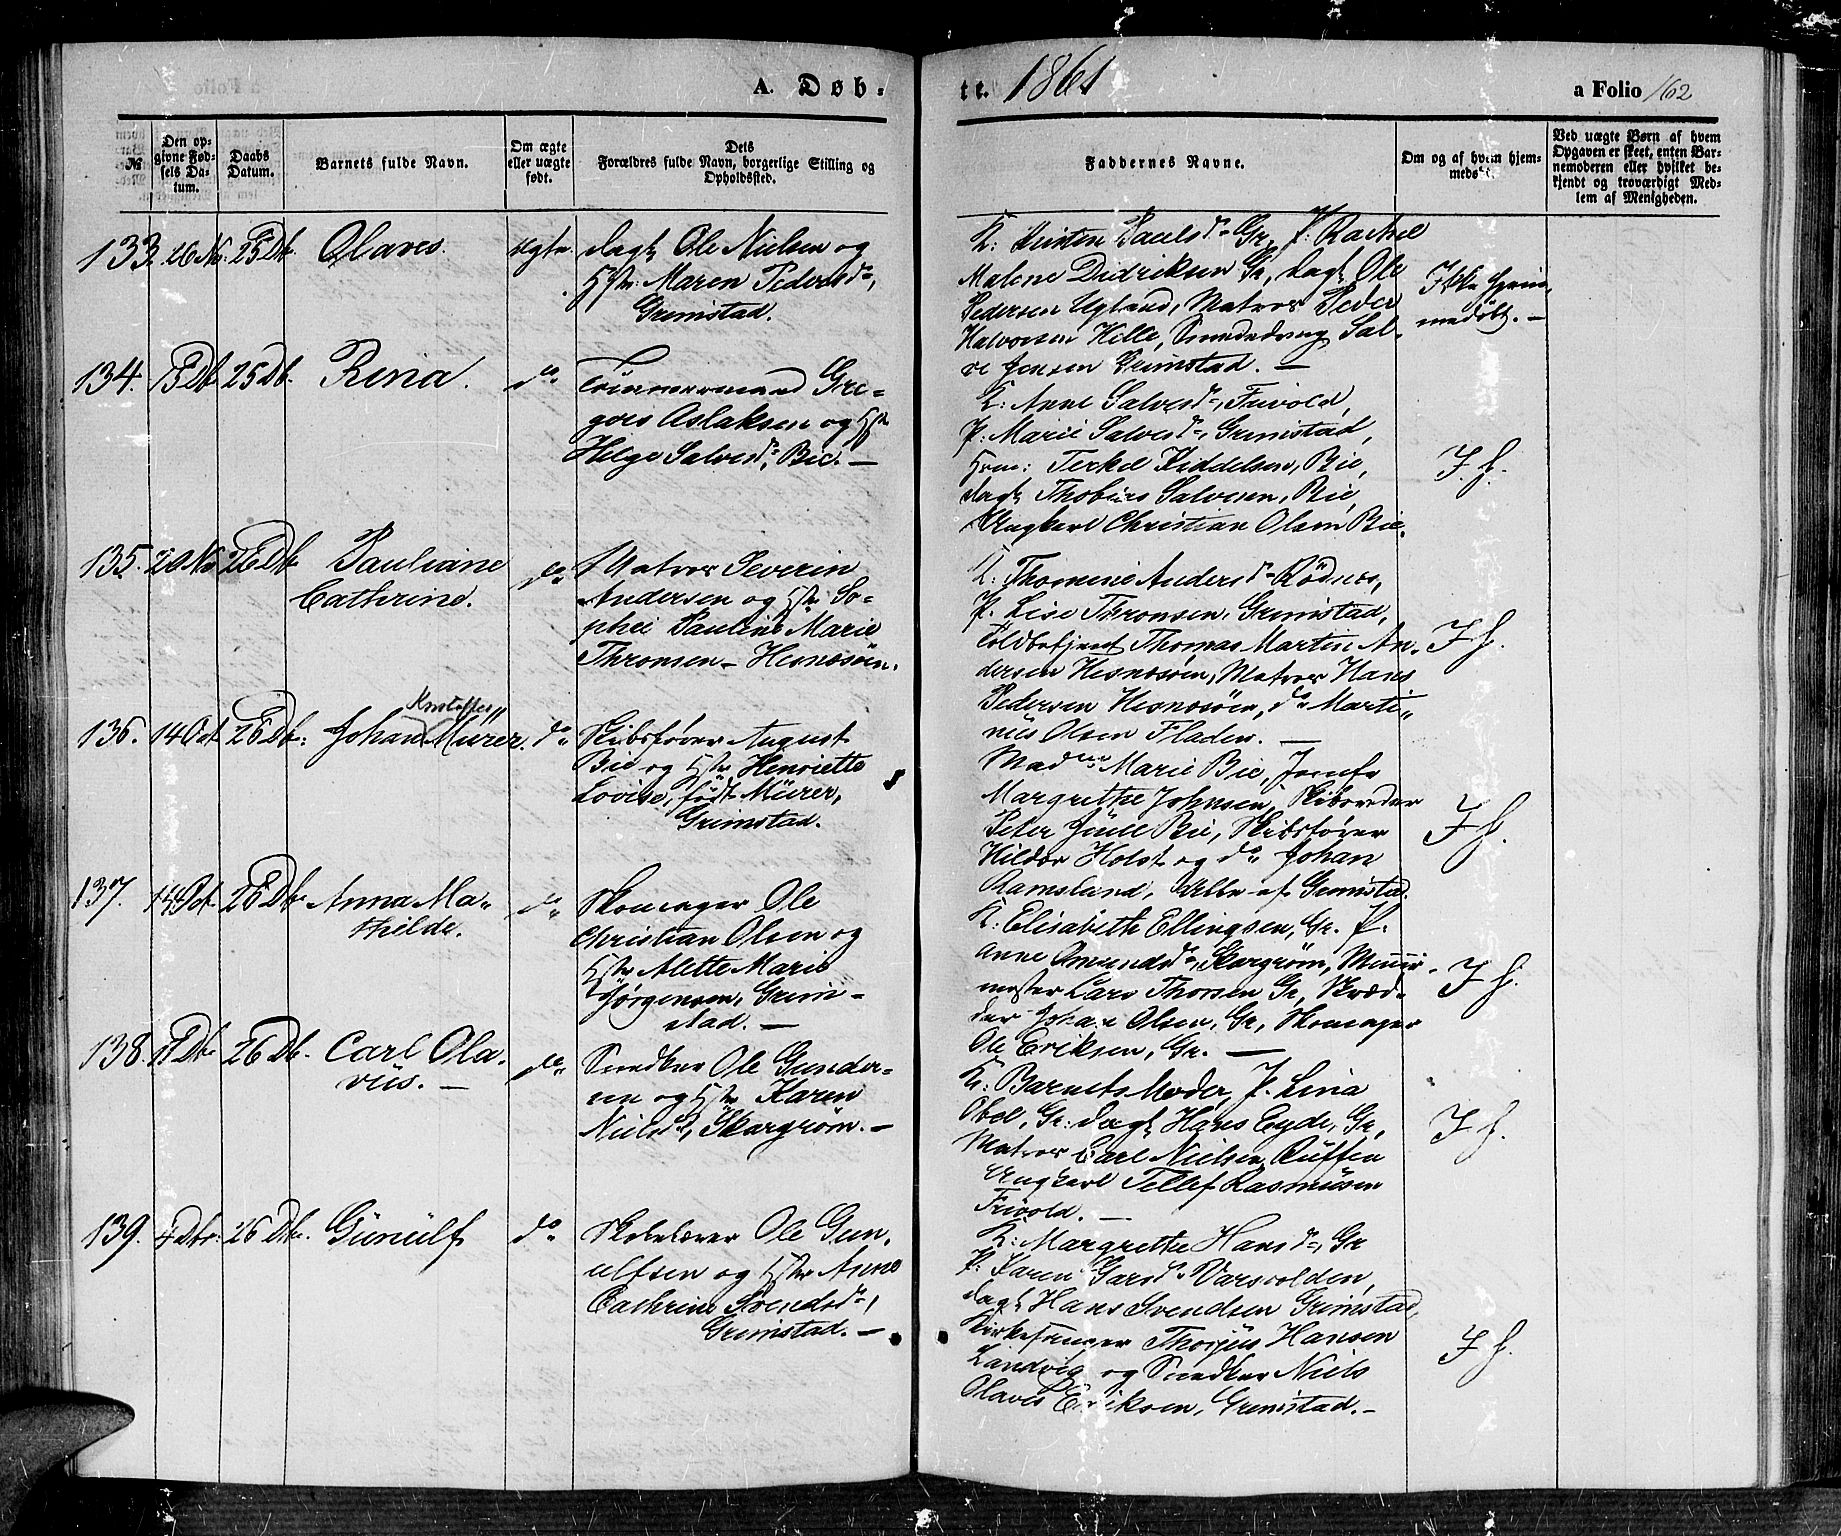 A. Døb-
tt. 1861
a Folio 162
№
Den opgivne Fødsels Datum.
Daabs Datum.
Barnets fulde Navn.
Om ægte eller uægte født.
Dets Forældres fulde Navn, borgerlige Stilling og Opholdssted.
Faddernes Navne.
Om og af hvem hjemmedøbt.
Ved uægte Børn af hvem Opgaven er skeet, enten Barnemoderen eller hvilket bekjendt og troværdigt Medlem af Menigheden.
133. 26 No. 25 Db. Olaves. Ægte. Dagl. Ole Nielsen og
Hstr: Maren Pedersdr,
Grimstad.
K: Kirsten Paulsdr Gr, P: Rachel
Malene Didriksen Gr, Dagl. Ole
Pedersen Ugland, Matros Peder
Halvorsen Hille, Smededreng Sal-
ve Jensen Grimstad. —
Ikke hjem-
medøbt. —
134. 15 Db 25 Db. Rina. do
Tømmermand Gre-
gors Aslaksen og Hstr
Helge Salvesdr, Bie. —
K: Anne Salvesdr, Frivold,
P: Marie Salvesdr, Grimstad,
Hrm: Terkel Kiddelsen, Bie,
Dagl. Thobias Salvesen, Bie,
Ungkarl Christian Olsen Bie.
I. h.
135. 20 No 26 Db. Pauliane
Cathrine. do
Matros Severin
Andersen og Hstr So-
phie Pauline Marie
Thronsen — Hesnesøen.
K: Thomine Andersdr Rødnes,
P: Lise Thronsen, Grimstad,
Toldbetjent Thomas Martin An-
dersen Hesnesøen, Matros Hans
Pedersen Hesnesøen, do Marti-
nus Olsen Fladen. —
I h.
136. 14 Oct 26 Db: Johan Kristoffer Murer. do
Skibsfører August
Bie og Hstr Henriette
Lovise, født Mürer,
Grimstad.
Madme Marie Bie, Jomfr
Margrethe Johnsen, Skibsreder
Peter Juul Bie, Skibsfører
Hildor Holst og do Johan
Ramslund, Alle af Grimstad.
I h.
137. 14 Oct. 26 Db. Anna Ma-
thilde. do
Skomager Ole
Christian Olsen og
Hstr Alette Marie
Jørgensen, Grim-
stad. —
K: Elisabeth Ellingsen, Gr. P.
Anne Omundsdr, Skargrøm, Muur-
mester Lars Thorsen Gr, Skræd-
der Johan Olsen, Gr, Skomager
Ole Eriksen, Gr. —
I h.
138. 11 Db. 26 Db. Carl Ola-
vus. — do
Snedker Ole Gunder-
sen og Hstr Karen
Nielsdr, Skargrøm. —
K: Barnets Moder, P. Lina
Obel, Gr: Dagl. Hans Eyde, Gr,
Matros Carl Nielsen Ruffen
Ungkarl Tellef Rasmusen
Frivold. —
I h.
139. 4 Dbr: 26 Dbr. Gunulf do
Skolelærer Ole Gun-
ulfsen og Hstr Anne
Cathrine Svendsdr,
Grimstad. —
K: Margrethe Hansdr, Gr
P. Karen Larsdr Varsvolden,
Dagl. Hans Svendsen Grimstad,
Kirkesanger Thorjus Hansen
Landvig og Snedker Niels
Olaves Eriksen, Grimstad. —
I h.